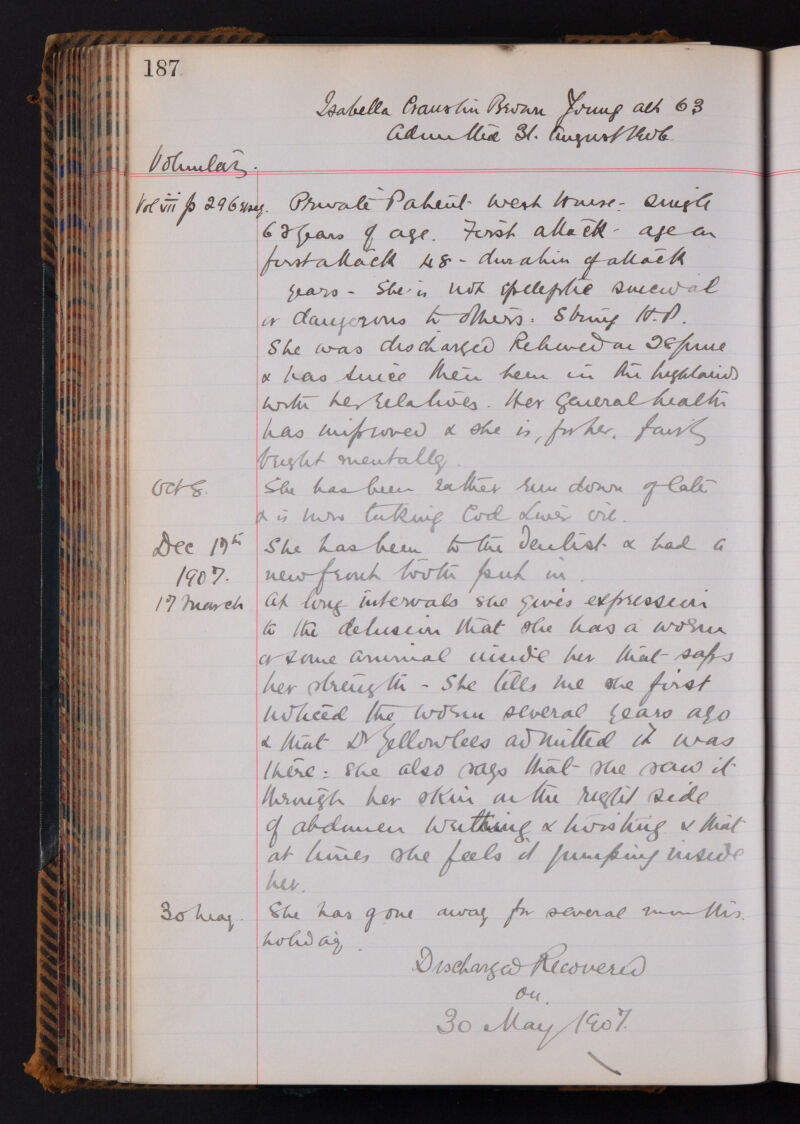 187
Isabella Cranstin Brown Young aet 63
Admitted 31. August 1906
Voluntary.
Vol vii p 296 Private Patient West House - Single
63 years of age. First attack - age on
first attack 48 - duration of attack
years - She is not epileptic suicidal
or dangerous to others: Strong H.P.
She was discharged Relieved on 28 June
& has since then been in the highlands
with her relatives. Her general health
has improved & she is, for her, fairly
bright mentally.
Oct 8. She has been rather run down of late
& is now taking Cod Liver oil.
Dec 19th She has been to the Dentist & had a
1907. new front tooth put in.
17 March At long intervals she gives expression
to the delusion that she has a worm
or some animal inside her that saps
her strength - She tells me she first
noticed the worm several years ago
& that Dr Yellowlees admitted it was
there: She also says that she saw it
through her skin on the right side
of abdomen writhing & twisting & that
at times she feels it jumping inside
her.
30 May. She has gone away for several months
holiday.
Discharged Recovered
on
30 May 1907.